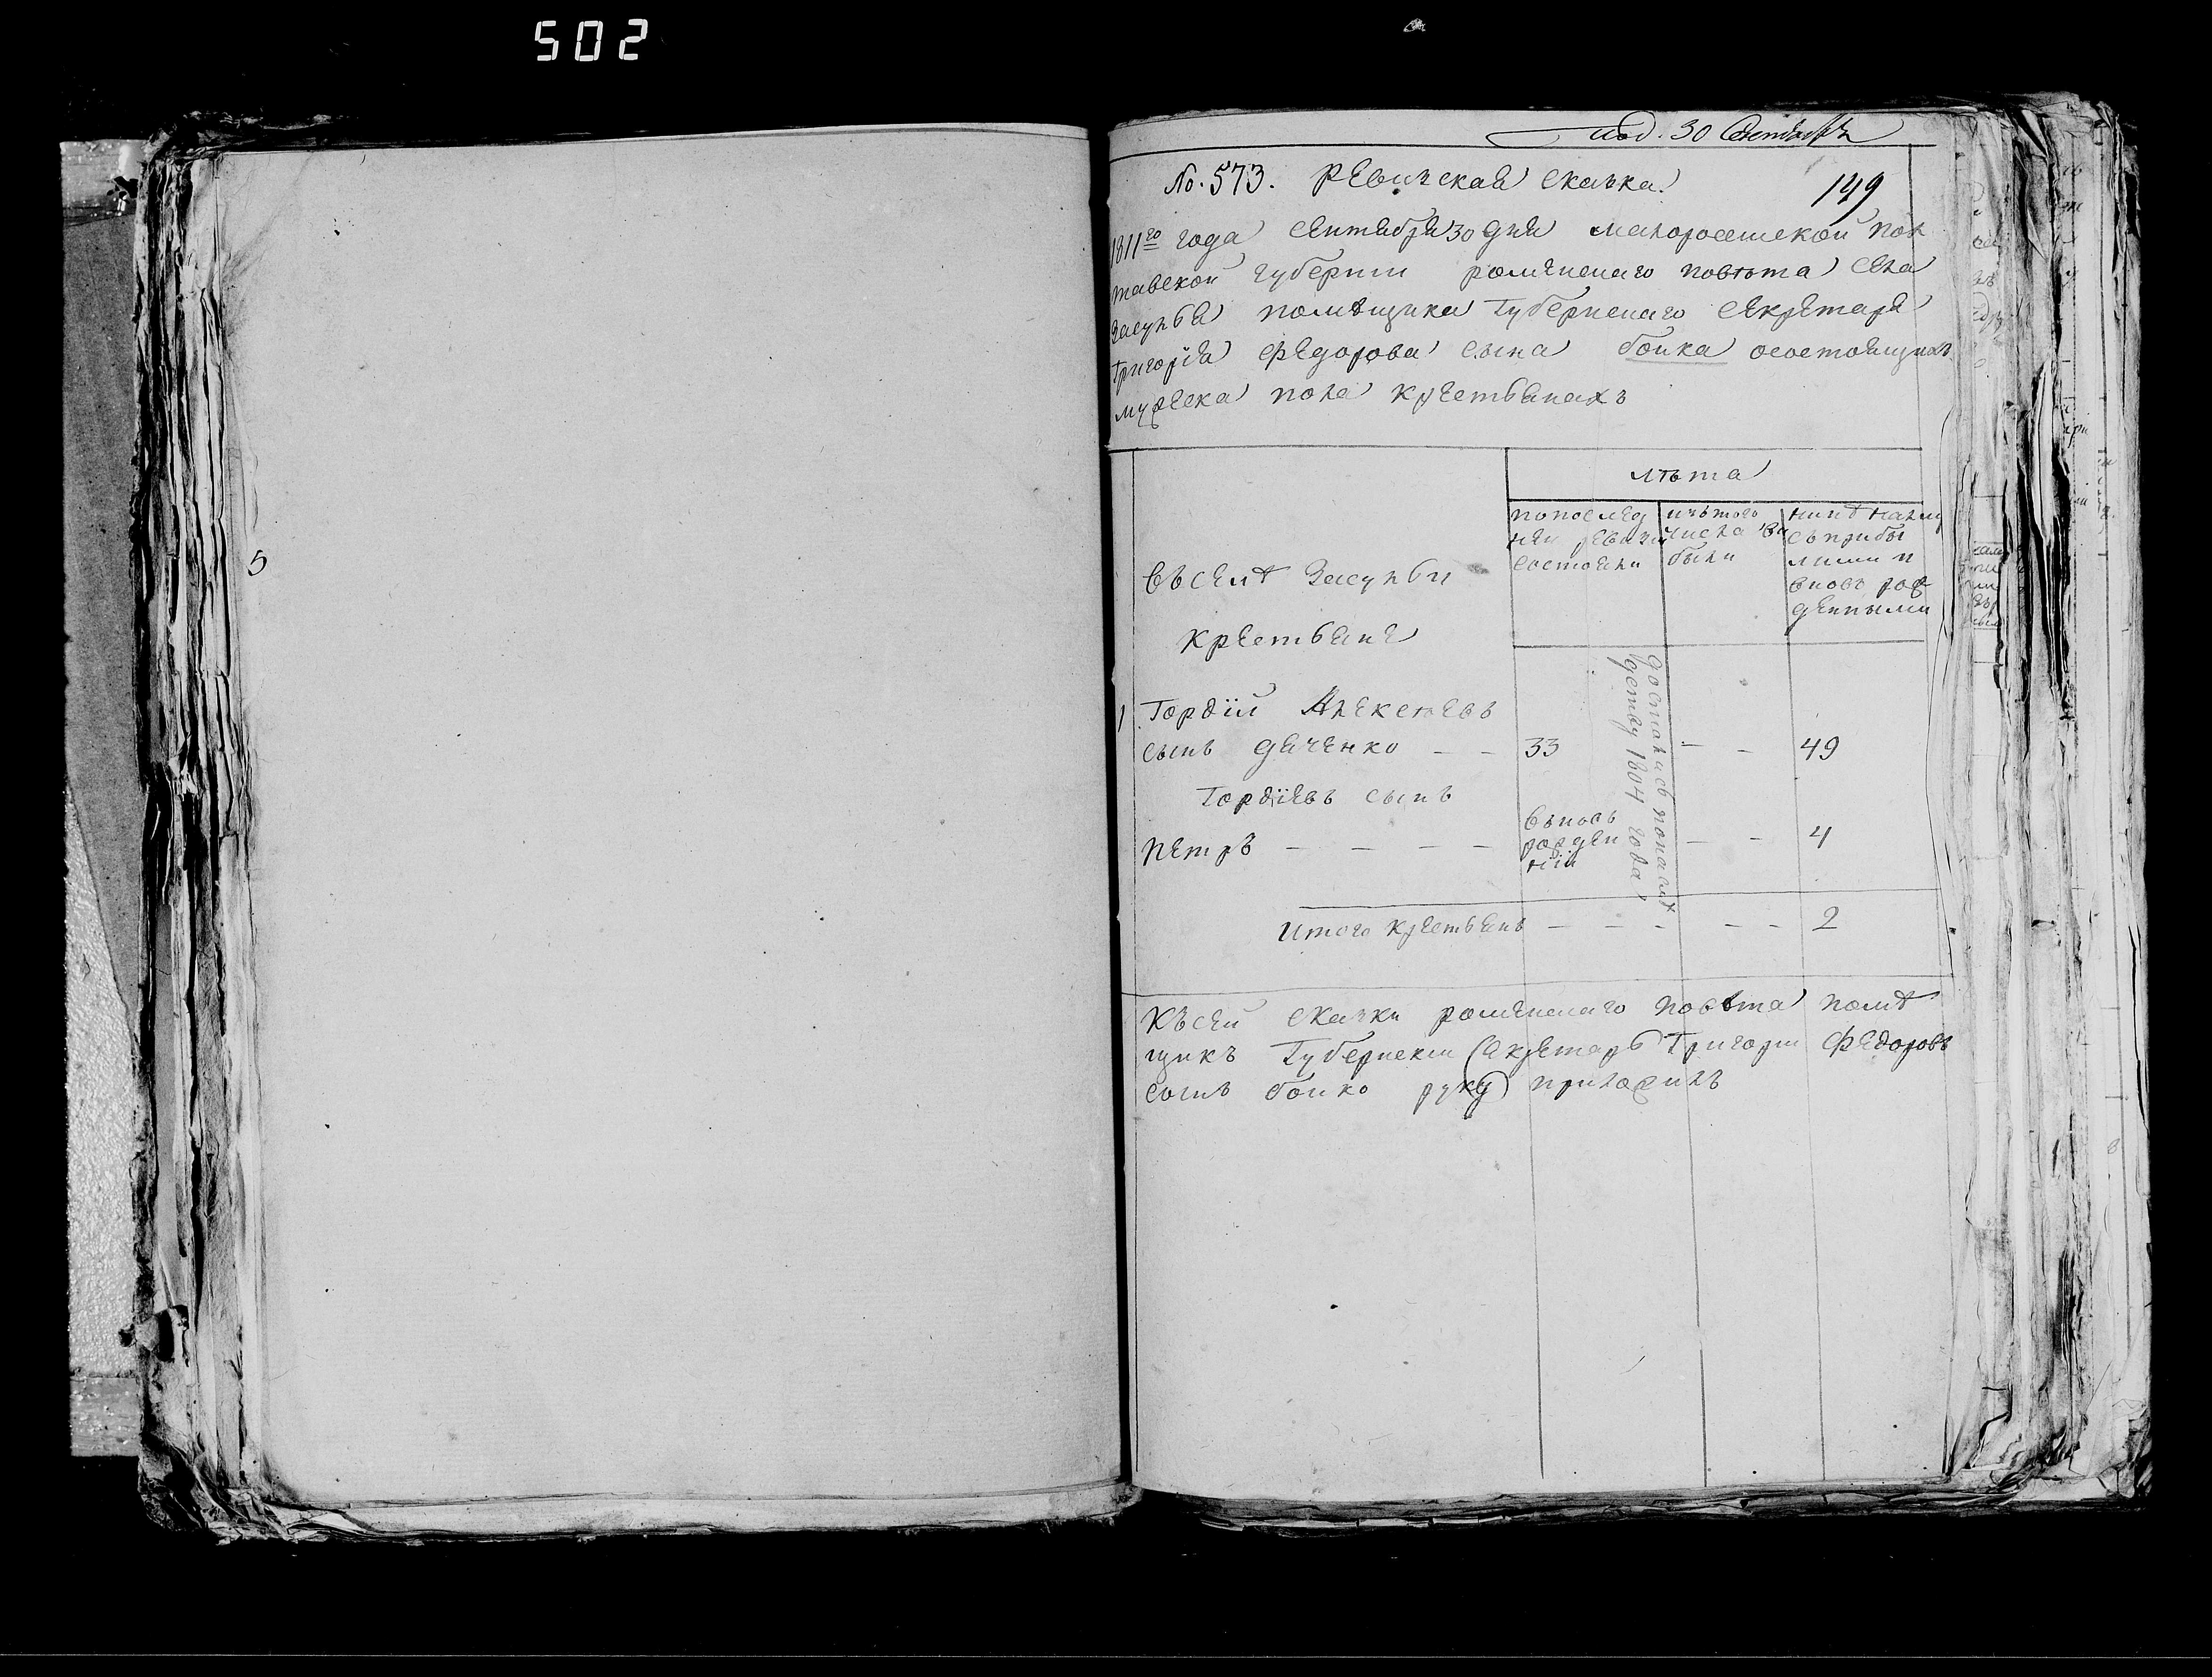 502
под. 30 Сентября
No. 573. Ревизская сказка.
149
1811го года сентября 30 дня малоросийской пол
тавской губернии роменскаго повѣта села
засулья помѣщика губернскаго секретаря
григорія федорова сына бойка осостоящихъ
мужеска пола крестьянахъ
лѣта
въселѣ Засульи
крестьяне
попослед
ней ревизи
состояли
изътого
числа вы
были
нинѣ налиц
съприбы
лими и
вновь рож
денными
1
Гордѣй Алексеевъ
сынъ дяченко — — 33 — — 49
досталась попасмѣ
детву 1804 года
Гордіевъ сынъ
Петръ — — — — вьновь
рожден
ній — — 4
итого крестьянъ — — — — — 2
Къ сей сказки роменскаго повѣта помѣ
щикъ Губернски секретарь Григори Федоровъ
сынъ бойко руку приложилъ
5